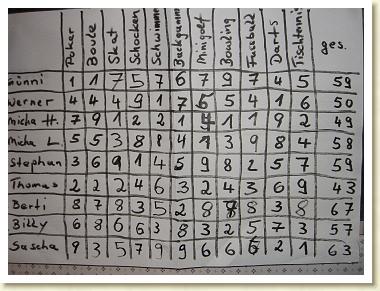 Poker Boule Skat Schocken Schwimme Backgamm Minigolf Bowling Fussball Darts Tischtenni ges.
1 1 7 5 7 6 7 9 7 4 5 59
Werner 4 4 4 9 1 7 5 5 4 1 6 50
Micha H. 7 9 1 2 2 1 4 1 1 9 2 49
Micha L. 5 5 3 8 8 4 1 3 9 8 4 58
Stephan 3 6 9 1 4 5 9 8 2 5 7 59
Thomas 2 2 2 4 6 3 2 4 3 6 9 43
Berti 8 7 8 3 5 2 8 8 3 8 67
Billy 6 8 6 6 3 8 3 2 5 7 3 57
Sascha 9 3 5 7 9 9 6 6 6 2 1 63